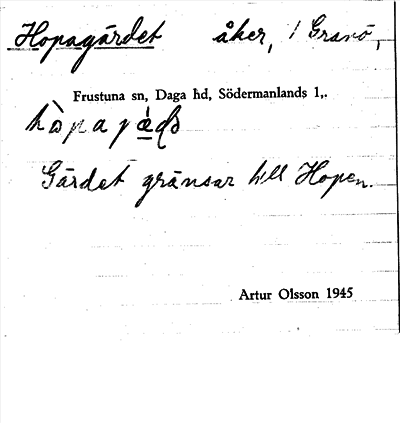 Hopagärdet åker, i Granö,
Frustuna sn, Daga hd, Södermanlands l,.
Gärdet gränsar till Hopen.
Artur Olsson 1945